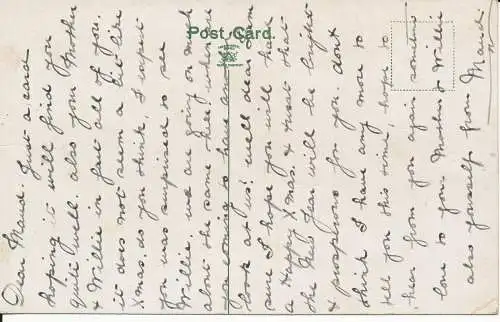 Post Card.
Dear Maud. Just a card
hoping it will find you
quit well. also your Mother
& Willie in fact all of you.
it does not seem a bit like
Xmas. do you think, I expect
you was surprised to see
Willie. we are going on much
about the same hell when are
you coming to have another
look at us! well dear I am
sure I hope you will have
a Happy Xmas. & trust that
the New Year will be bright
& prosperous for you. dont
think I have any more to
tell you this time hope to
hear from you again
love to you Mother & Willie
also yourself from Maud